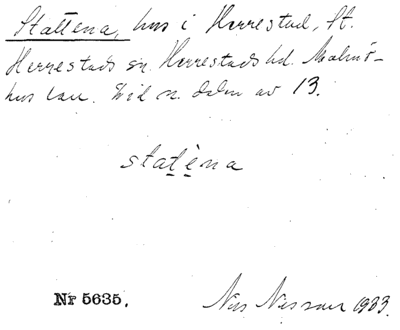 Stattena, hus i Herrestad, St.
Herrestads sn. Herrestads hd. Malmö-
hus län. Vid n. delen av 13.
statèna
Nr 5635.
Nils Nilsson 1933.